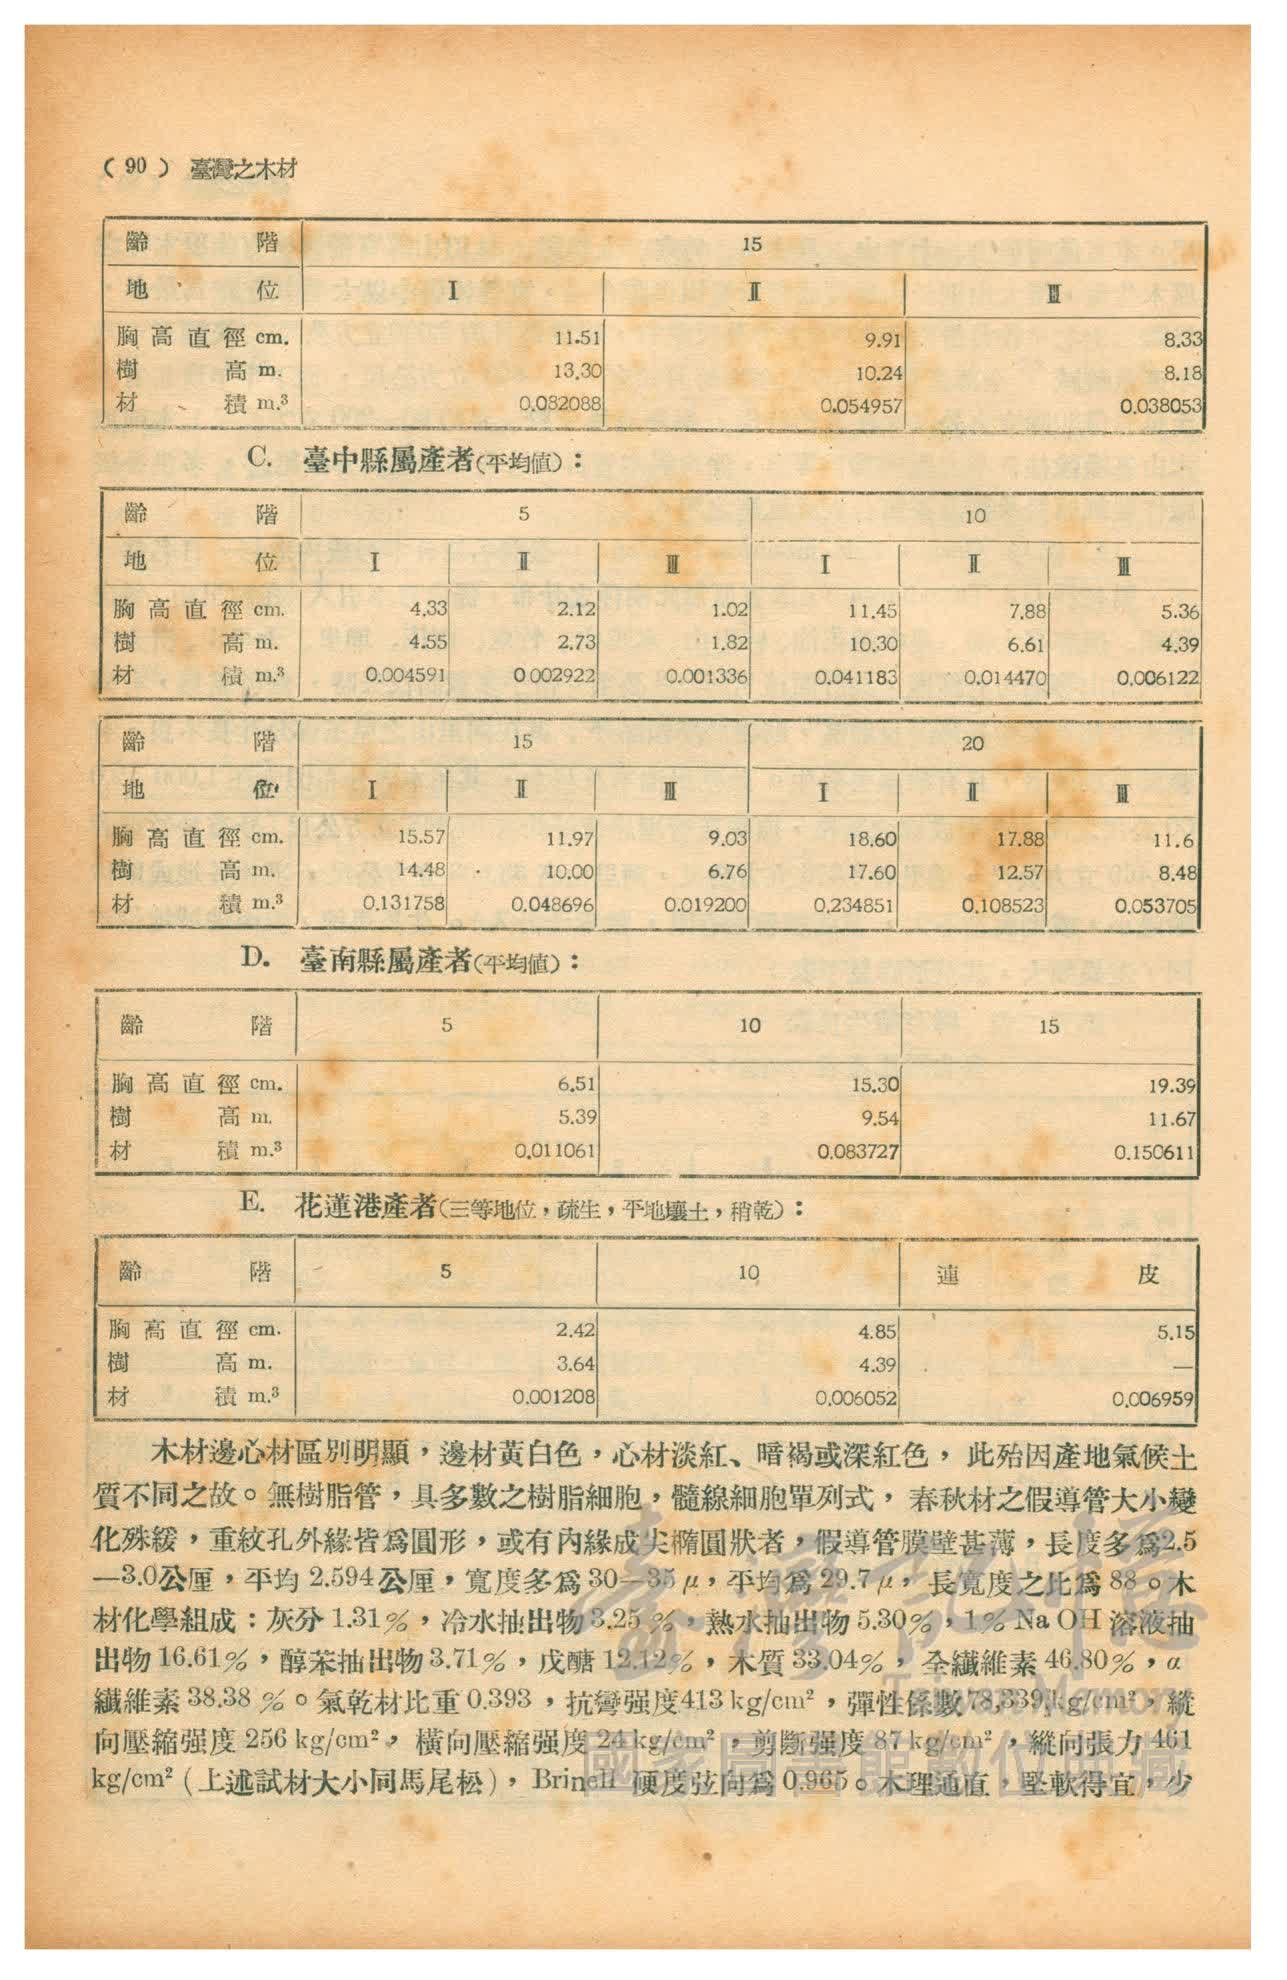 ( 90 ) 臺灣之木材
齡 階 15
地 位 I II III
胸高直徑 cm. 11.51 9.91 8.33
樹 高 m. 13.30 10.24 8.18
材 積 m.³ 0.082088 0.054957 0.038053
C. 臺中縣屬產者(平均值)：
齡 階 5 10
地 位 I II III I II III
胸高直徑 cm. 4.33 2.12 1.02 11.45 7.88 5.36
樹 高 m. 4.55 2.73 1.82 10.30 6.61 4.39
材 積 m.³ 0.004591 0 002922 0.001336 0.041183 0.014470 0.006122
齡 階 15 20
地 位 I II III I II III
胸高直徑 cm. 15.57 11.97 9.03 18.60 17.88 11.6
樹 高 m. 14.48 10.00 6.76 17.60 12.57 8.48
材 積 m.³ 0.131758 0.048696 0.019200 0.234851 0.108523 0.053705
D. 臺南縣屬產者(平均值)：
齡 階 5 10 15
胸高直徑 cm. 6.51 15.30 19.39
樹 高 m. 5.39 9.54 11.67
材 積 m.³ 0.011061 0.083727 0.150611
E. 花蓮港產者(三等地位，疏生，平地壤土，稍乾)：
齡 階 5 10 連 皮
胸高直徑 cm. 2.42 4.85 5.15
樹 高 m. 3.64 4.39 —
材 積 m.³ 0.001208 0.006052 0.006959
木材邊心材區別明顯，邊材黃白色，心材淡紅、暗褐或深紅色，此殆因產地氣候土
質不同之故。無樹脂管，具多數之樹脂細胞，髓線細胞單列式，春秋材之假導管大小變
化殊緩，重紋孔外緣皆爲圓形，或有內緣成尖橢圓狀者，假導管膜壁甚薄，長度多爲2.5
—3.0公厘，平均 2.594公厘，寬度多爲30—35 μ，平均爲29.7 μ，長寬度之比爲 88。木
材化學組成：灰分 1.31%，冷水抽出物 3.25 %，熱水抽出物 5.30%，1% Na OH 溶液抽
出物 16.61%，醇苯抽出物 3.71%，戊醣 12.12%，木質 33.04%，全纖維素 46.80%，α
纖維素 38.38 %。氣乾材比重 0.393，抗彎强度413 kg/cm²，彈性係數78,339 kg/cm²，縱
向壓縮强度 256 kg/cm²，橫向壓縮强度 24 kg/cm²，剪斷强度 87 kg/cm²，縱向張力 461
kg/cm² (上述試材大小同馬尾松)，Brinell 硬度弦向爲 0.965。木理通直，堅軟得宜，少
臺灣記憶
Taiwan Memory
國家圖書館數位典藏